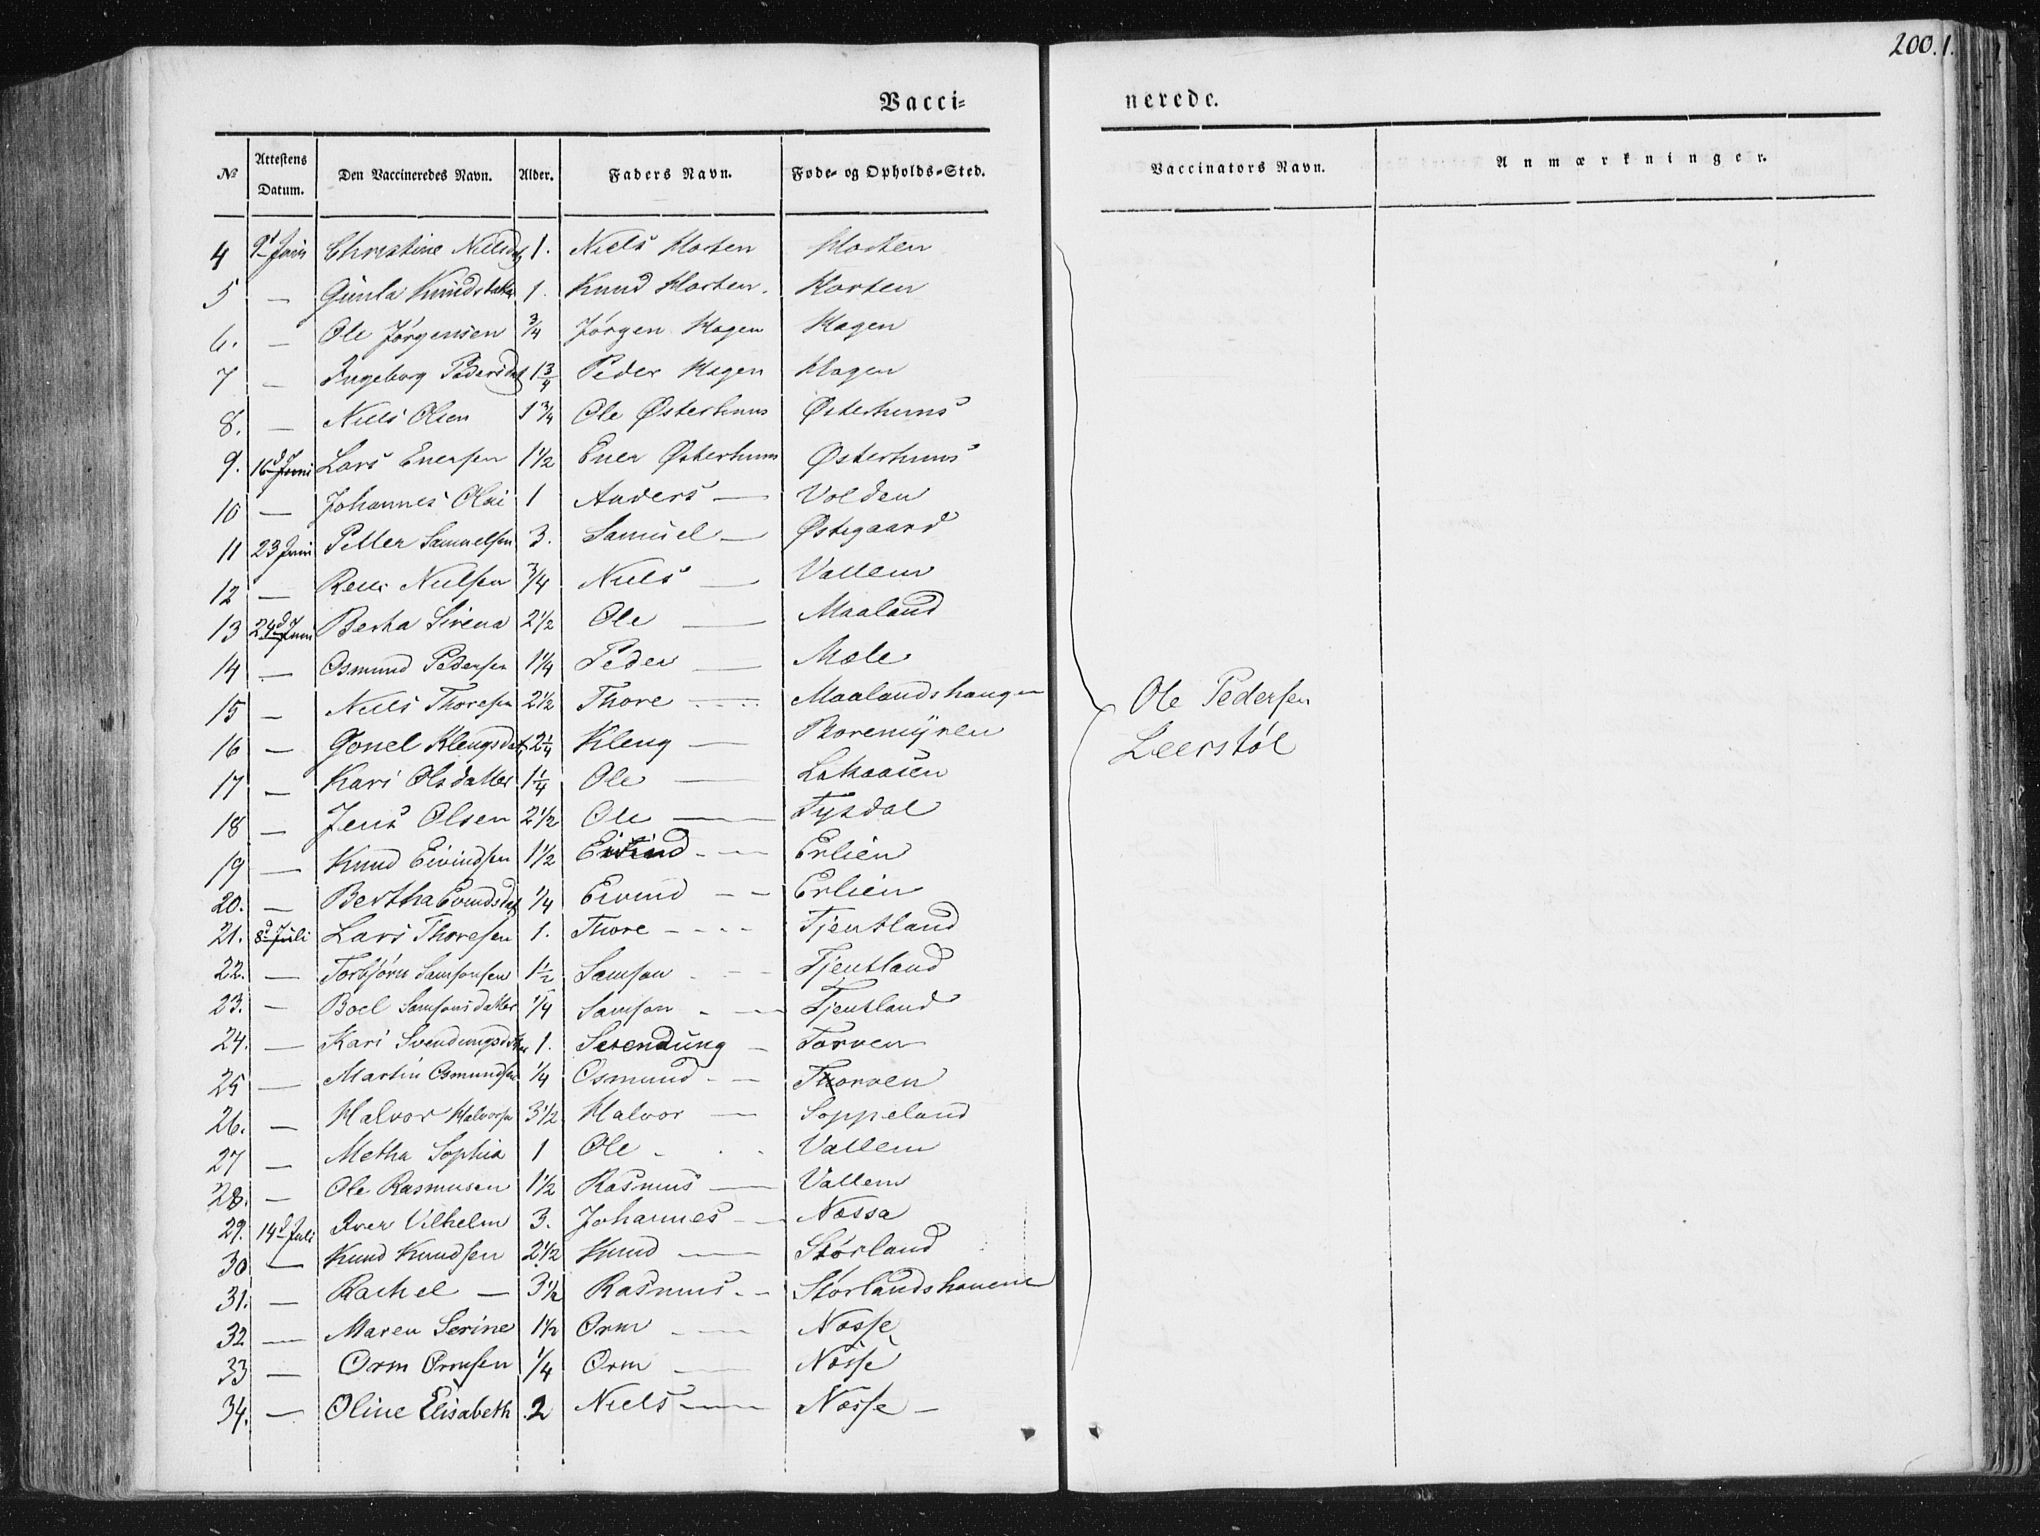 200.1.
Vacci= nerede.
No Attestens Datum. Den Vaccineredes Navn. Alder. Faders Navn. Føde- og Opholds-Sted. Vaccinators Navn. Anmærkninger.
4 9d Juni Christine Nielsd 1. Niels Horten Horten
5 — Gunla Knudsdatter 1. Knud Horten. Horten
6. — Ole Jørgensen 3/4 Jørgen Hagen Hagen
7 — Ingeborg Pedersdat 1 3/4 Peder Hagen Hagen
8. — Niels Olsen 1 3/4 Ole Østerhuus Østerhuus
9. 16d Juni Lars Enersen 1 1/2 Ener Østerhuus Østerhuus
10 — Johannes Olai 1 Anders — Volden
11 23 Juni Petter Samuelsen 3. Samuel — Østegaard
12 — Nielsen 3/4 Niels — Vallem
13 24d Juni Bertha Sirena 2 1/2 Ole — Maaland
14 — Osmund Pedersen 1 1/4 Peder — Mæle
15 — Niels Thoresen 2 1/2 Thore — Maalandshaugen
16 — Gonel Klengsdat 2 1/4 Kleng — Boremyren
17 — Kari Olsdatter 1 1/4 Ole —
18 — Jens Olsen 2 1/2 Ole — Tysdal
19 — Knud Eivindsen 1 1/2 Eivind — Erlien
20. — Bertha Evindsdat 1/4 Eivind — Erlien
21. 8d Juli Lars Thoresen 1. Thore — Tjentland
22. — Torbjørn Samsonsen 1 1/2 Samson — Tjentland
23. — Boel Samsonsdatter 1/4 Samson — Tjentland
24. — Kari Svendungsdatter 1. Svendung — Torven
25 — Martin Osmundsen 1/4 Osmund — Thorven
26. — Halvor Halvorsen 3 1/2 Halvor — Soppeland
27 — Metha Sophia 1 Ole — Vallem
28. — Ole Rasmusen 1 1/2 Rasmus — Vallem
29. 14d Juli Iver Vilhelm 3. Johannes — Nossa
30 — Knud Knudsen 2 1/2 Knud — Størland
31. — Rachel — 3 1/2 Rasmus — Størlandshauene
32 — Maren Serine 1 1/2 Orm — Nosse
33 — Orm Ormsen 1/4 Orm — Nosse
34. — Oline Elisabeth 2 Niels — Nosse —
Ole Pedersen
Leerstøl